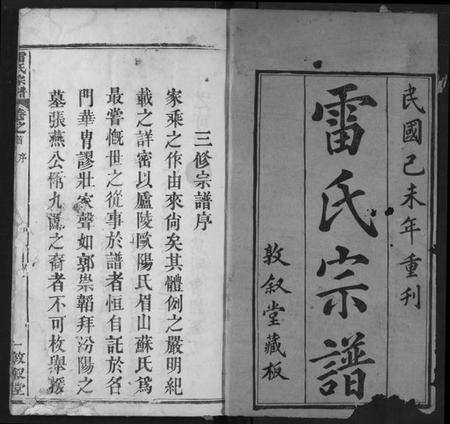 民國己未年重刊
雷氏宗譜
敦叙堂藏板
三修宗譜序
家乘之作由來尙矣其體例之嚴明紀
載之詳密以廬陵歐陽氏眉山蘇氏爲
最嘗慨世之從事於譜者恒自託於名
門華胄謬壯家聲如郭崇韜拜汾陽之
墓張燕公稱九齡之裔者不可枚舉
雷氏宗譜
卷之首
序
一
敦叙堂